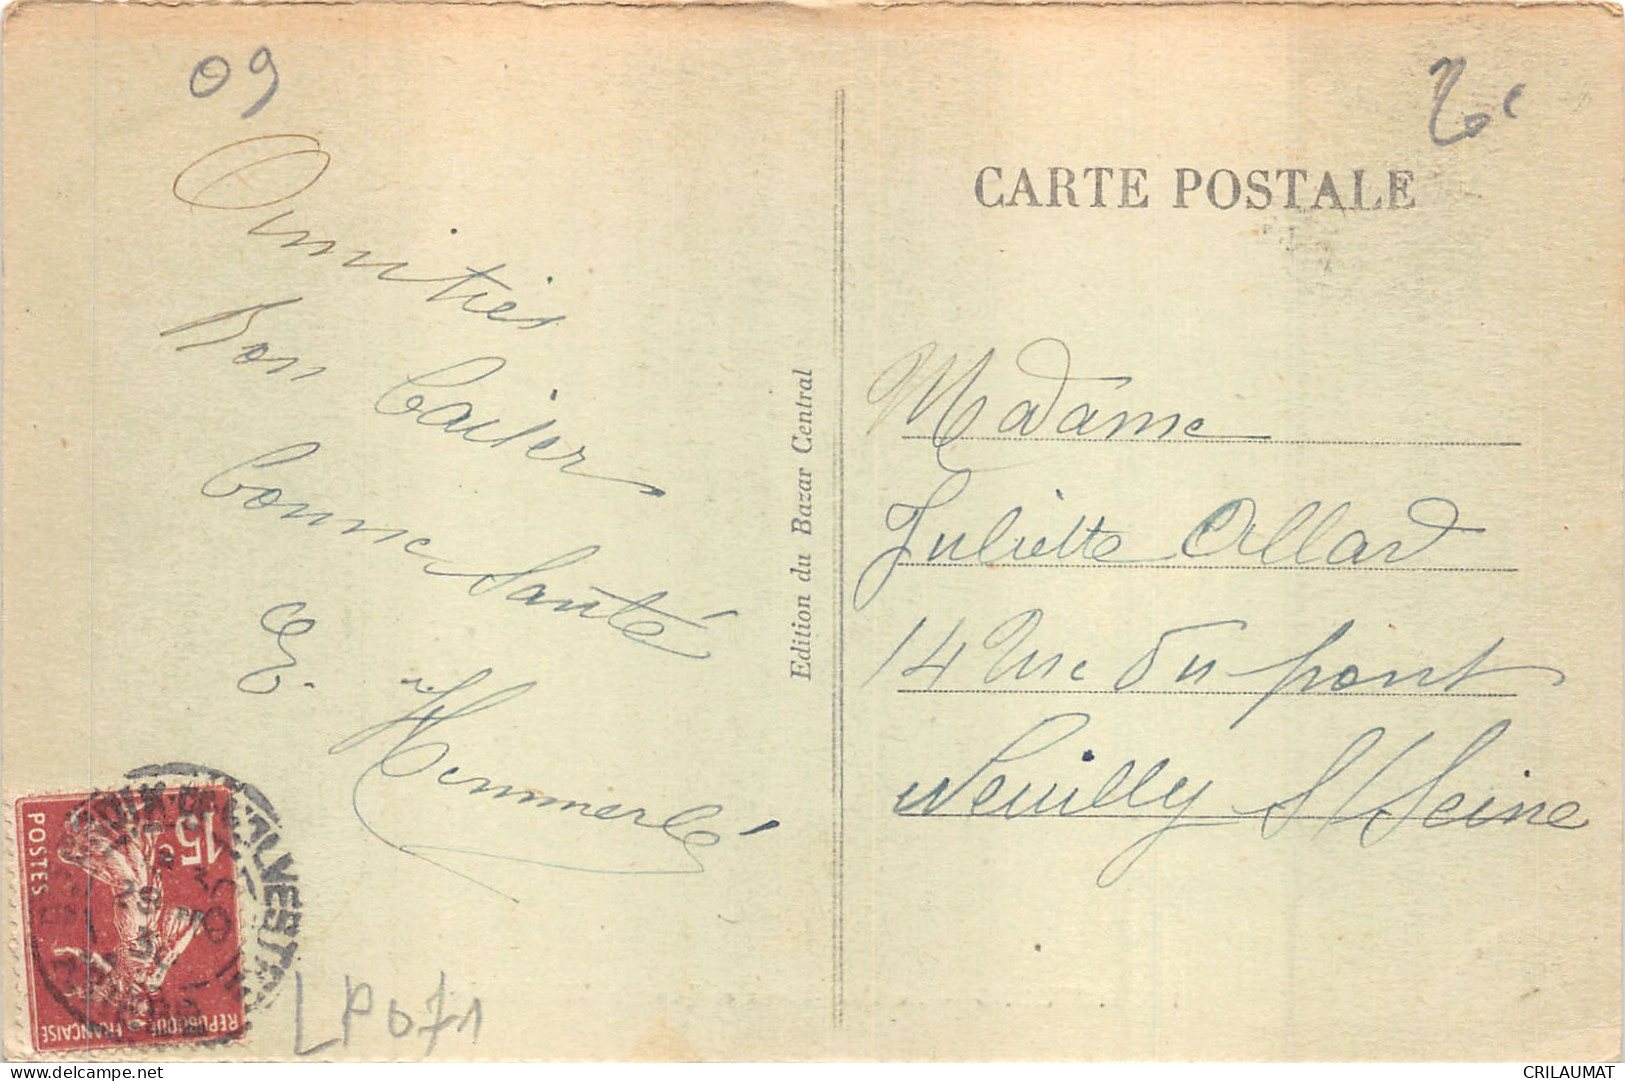 09
2€
CARTE POSTALE
Amitiés
Bon baiser
bonne Santé
E. Hemmerlé
Edition du Bazar Central
Madame
Juliette Allard
14 Rue du pont
Neuilly S/Seine
15
C
POSTES
REPUBLIQUE FRANÇAISE
LP071
www.delcampe.net
CRILAUMAT